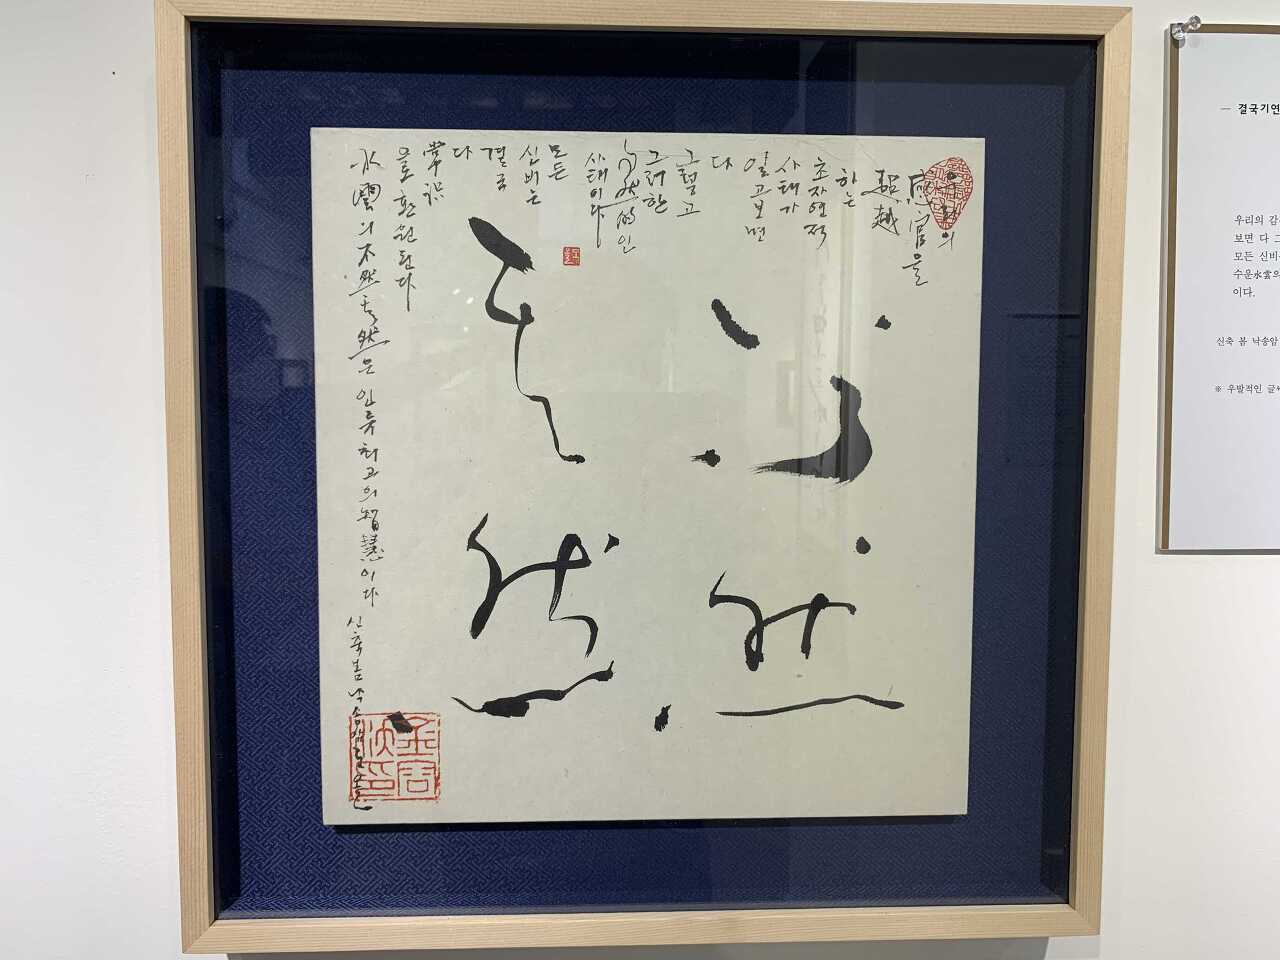 不然
其然
우리의
感官을
超越
하는
초자연적
사태가
알고보면
다
그렇고
그러한
自然的인
사태이다
모든
신비는
결국
다
常識
으로환원된다
水雲의不然其然은인류최고의智慧이다
신축봄낙송암
— 결국기연
우리의 감
보면 다 그
모든 신비
수운水雲의
이다.
신축 봄 낙송암
※ 우발적인 글씨